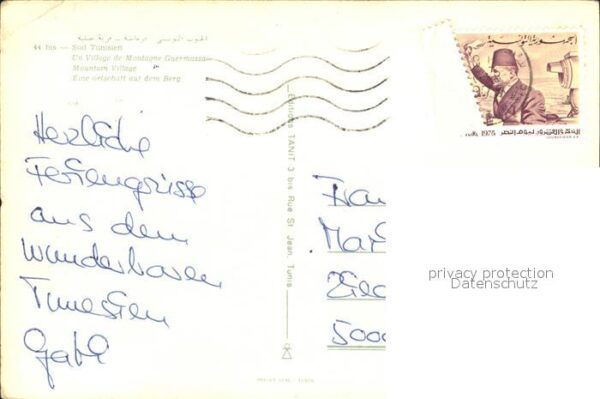 الجنوب التونسي - ڨرماسة - قرية جبلية
44 bis — Sud Tunisien
Un Village de Montagne Guermassa
Mountain Village
Eine ortschaft auf dem Berg
Herzliche
Feriengrüsse
aus dem
wunderbaren
Tunesien
Gabi
Editions TANIT 3 bis Rue St Jean, Tunis
Frau
Mar
5000
privacy protection
Datenschutz